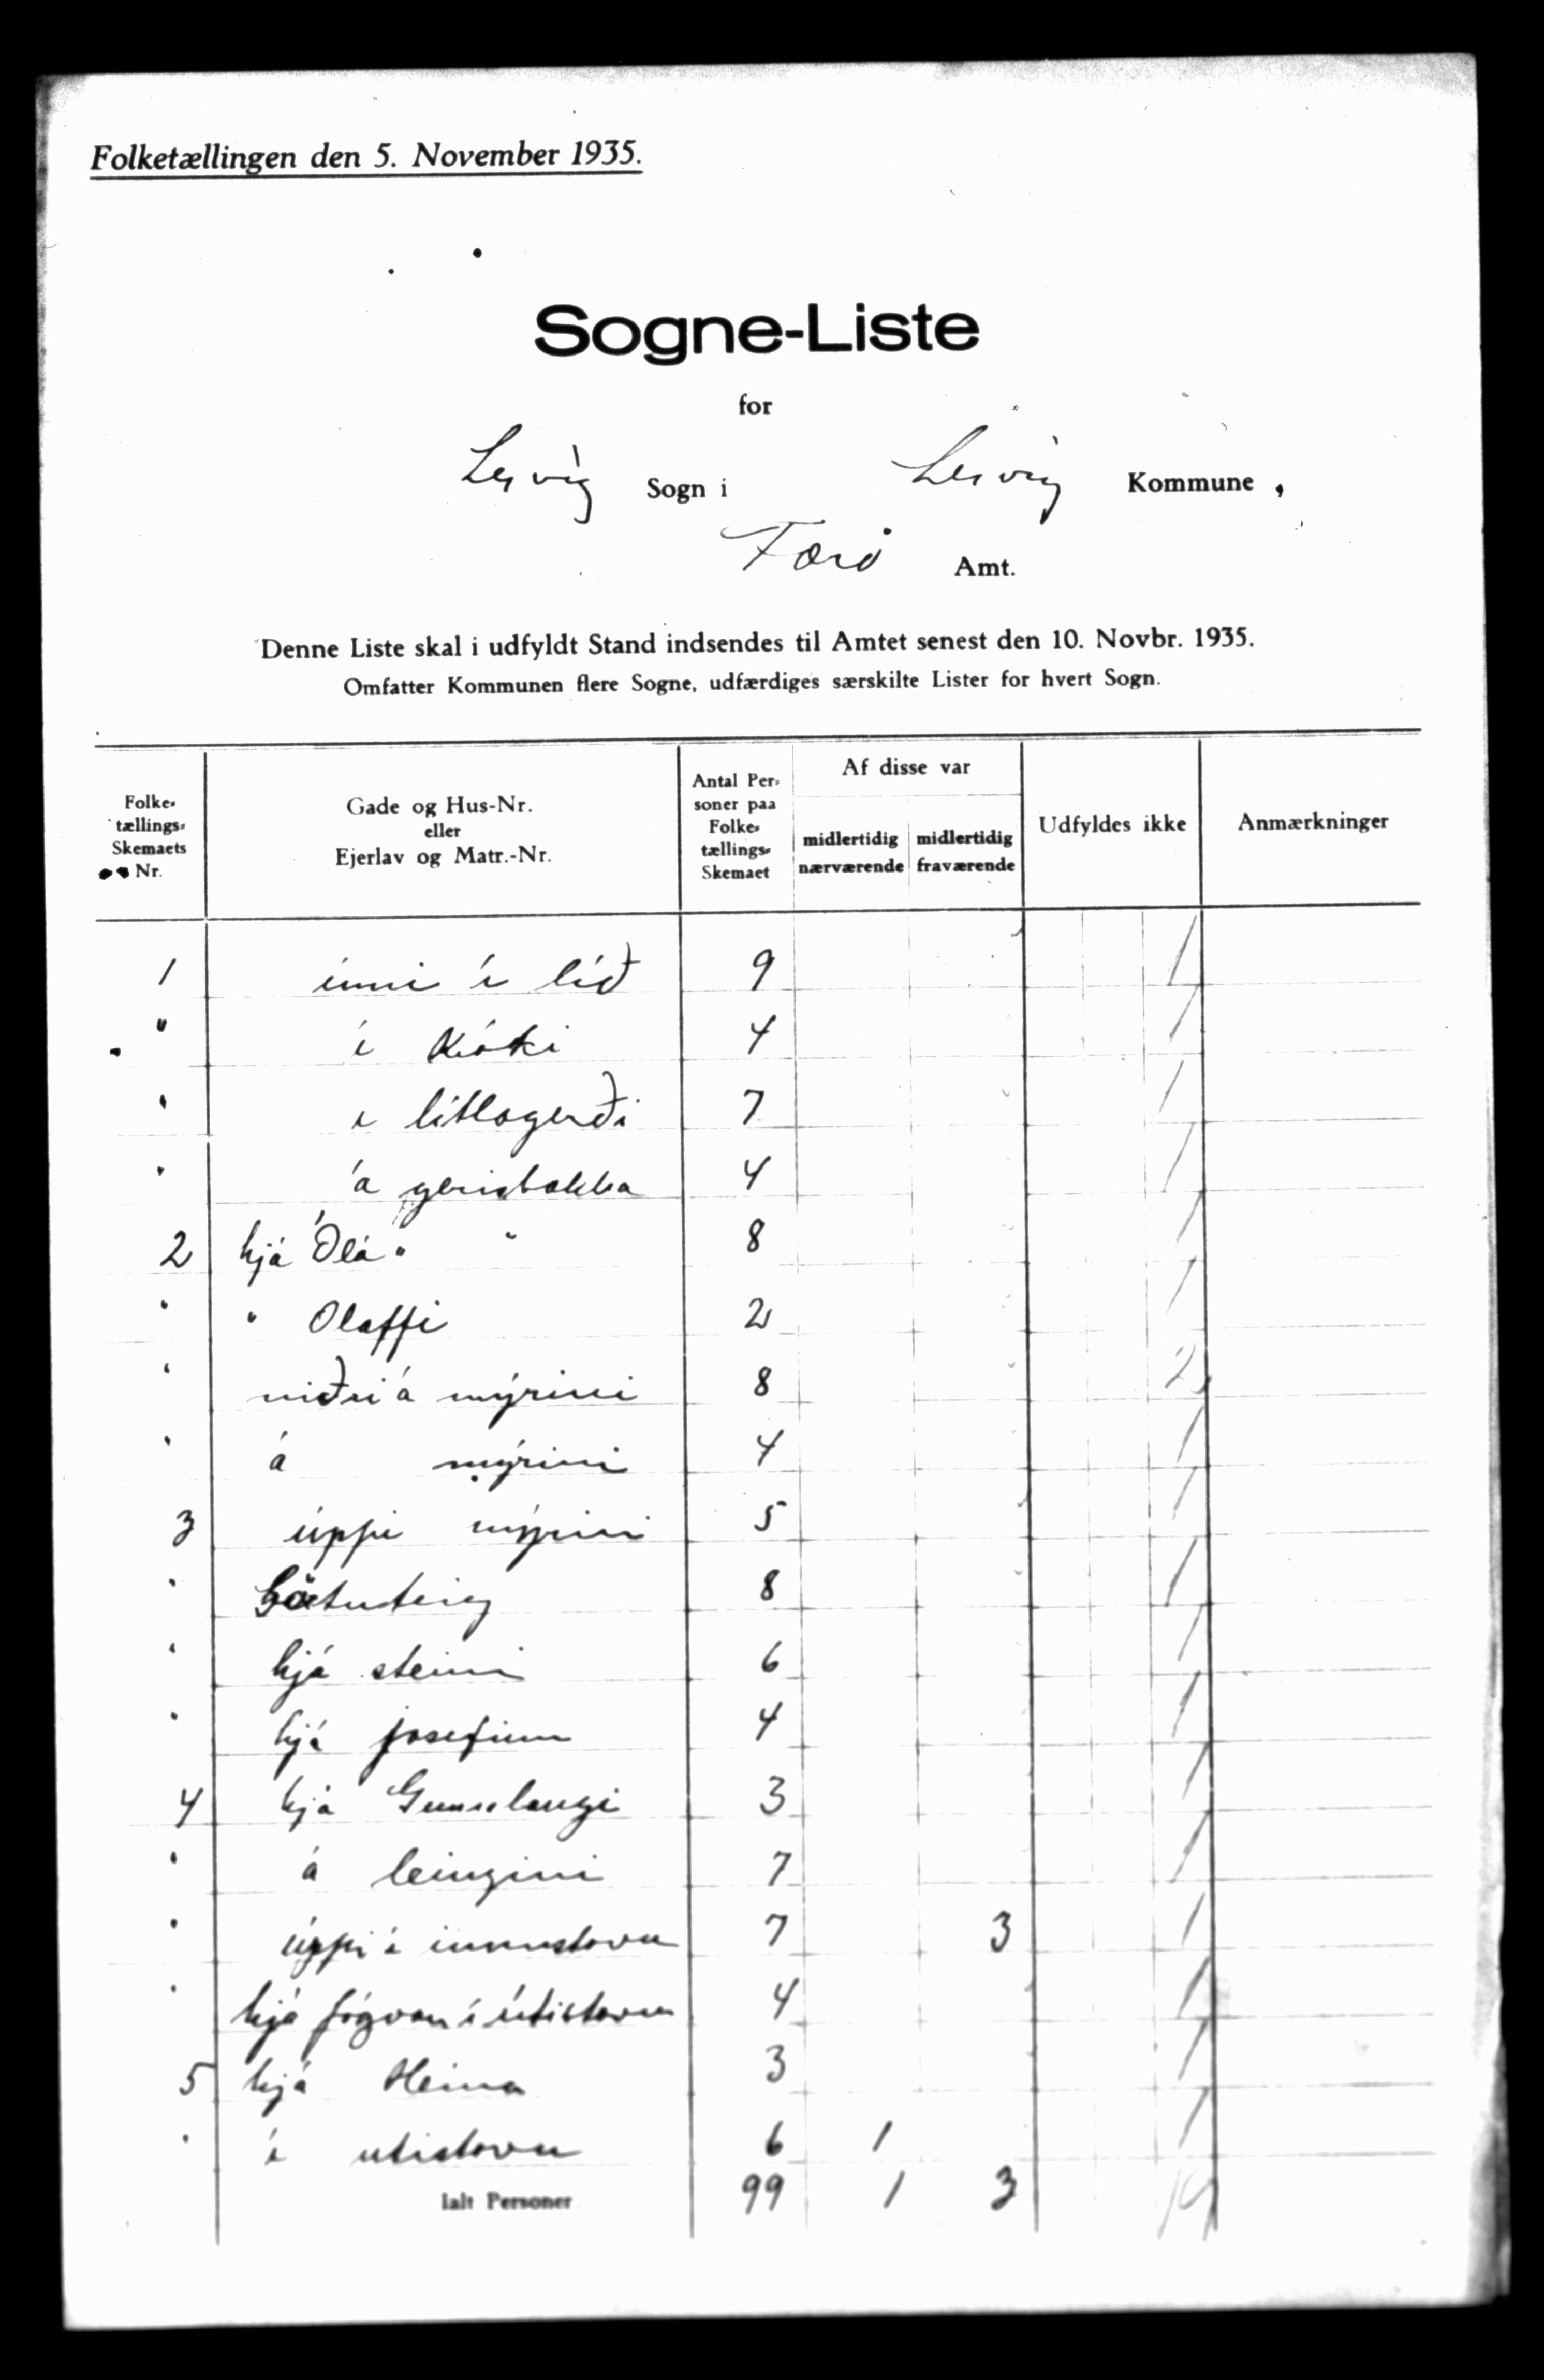 Folketællingen den 5. November 1935.
Sogne-Liste
for
Lervig Sogn i Lervig Kommune,
Færø Amt.
Denne Liste skal i udfyldt Stand indsendes til Amtet senest den 10. Novbr. 1935.
Omfatter Kommunen flere Sogne, udfærdiges særskilte Lister for hvert Sogn.
Folke-tællings-Skemaets Nr. Gade og Hus-Nr. eller Ejerlav og Matr.-Nr. Antal Personer paa Folke-tællings-Skemaet Af disse var midlertidig nærværende midlertidig fraværende Udfyldes ikke Anmærkninger
1 inni í líð 9 1
" í Króki 4 1
" í litlagerði 7 1
" á gerisbakka 4 1
2 hjá Óla " " 8 1
" " Olaffi 2 1
" niðri á mýrini 8 2
" á mýrini 4 1
3 úppi mýrini 5 1
" Gøtuteig 8 1
" hjá steini 6 1
" hjá josefinu 4 1
4 hjá Gunnlaugi 3 1
" á leingini 7 1
" úppi í innustovu 7 3 1
" hjá jógvan í útistovu 4 1
5 hjá Heina 3 1
" í utistovu 6 1 1
Ialt Personer 99 1 3 19